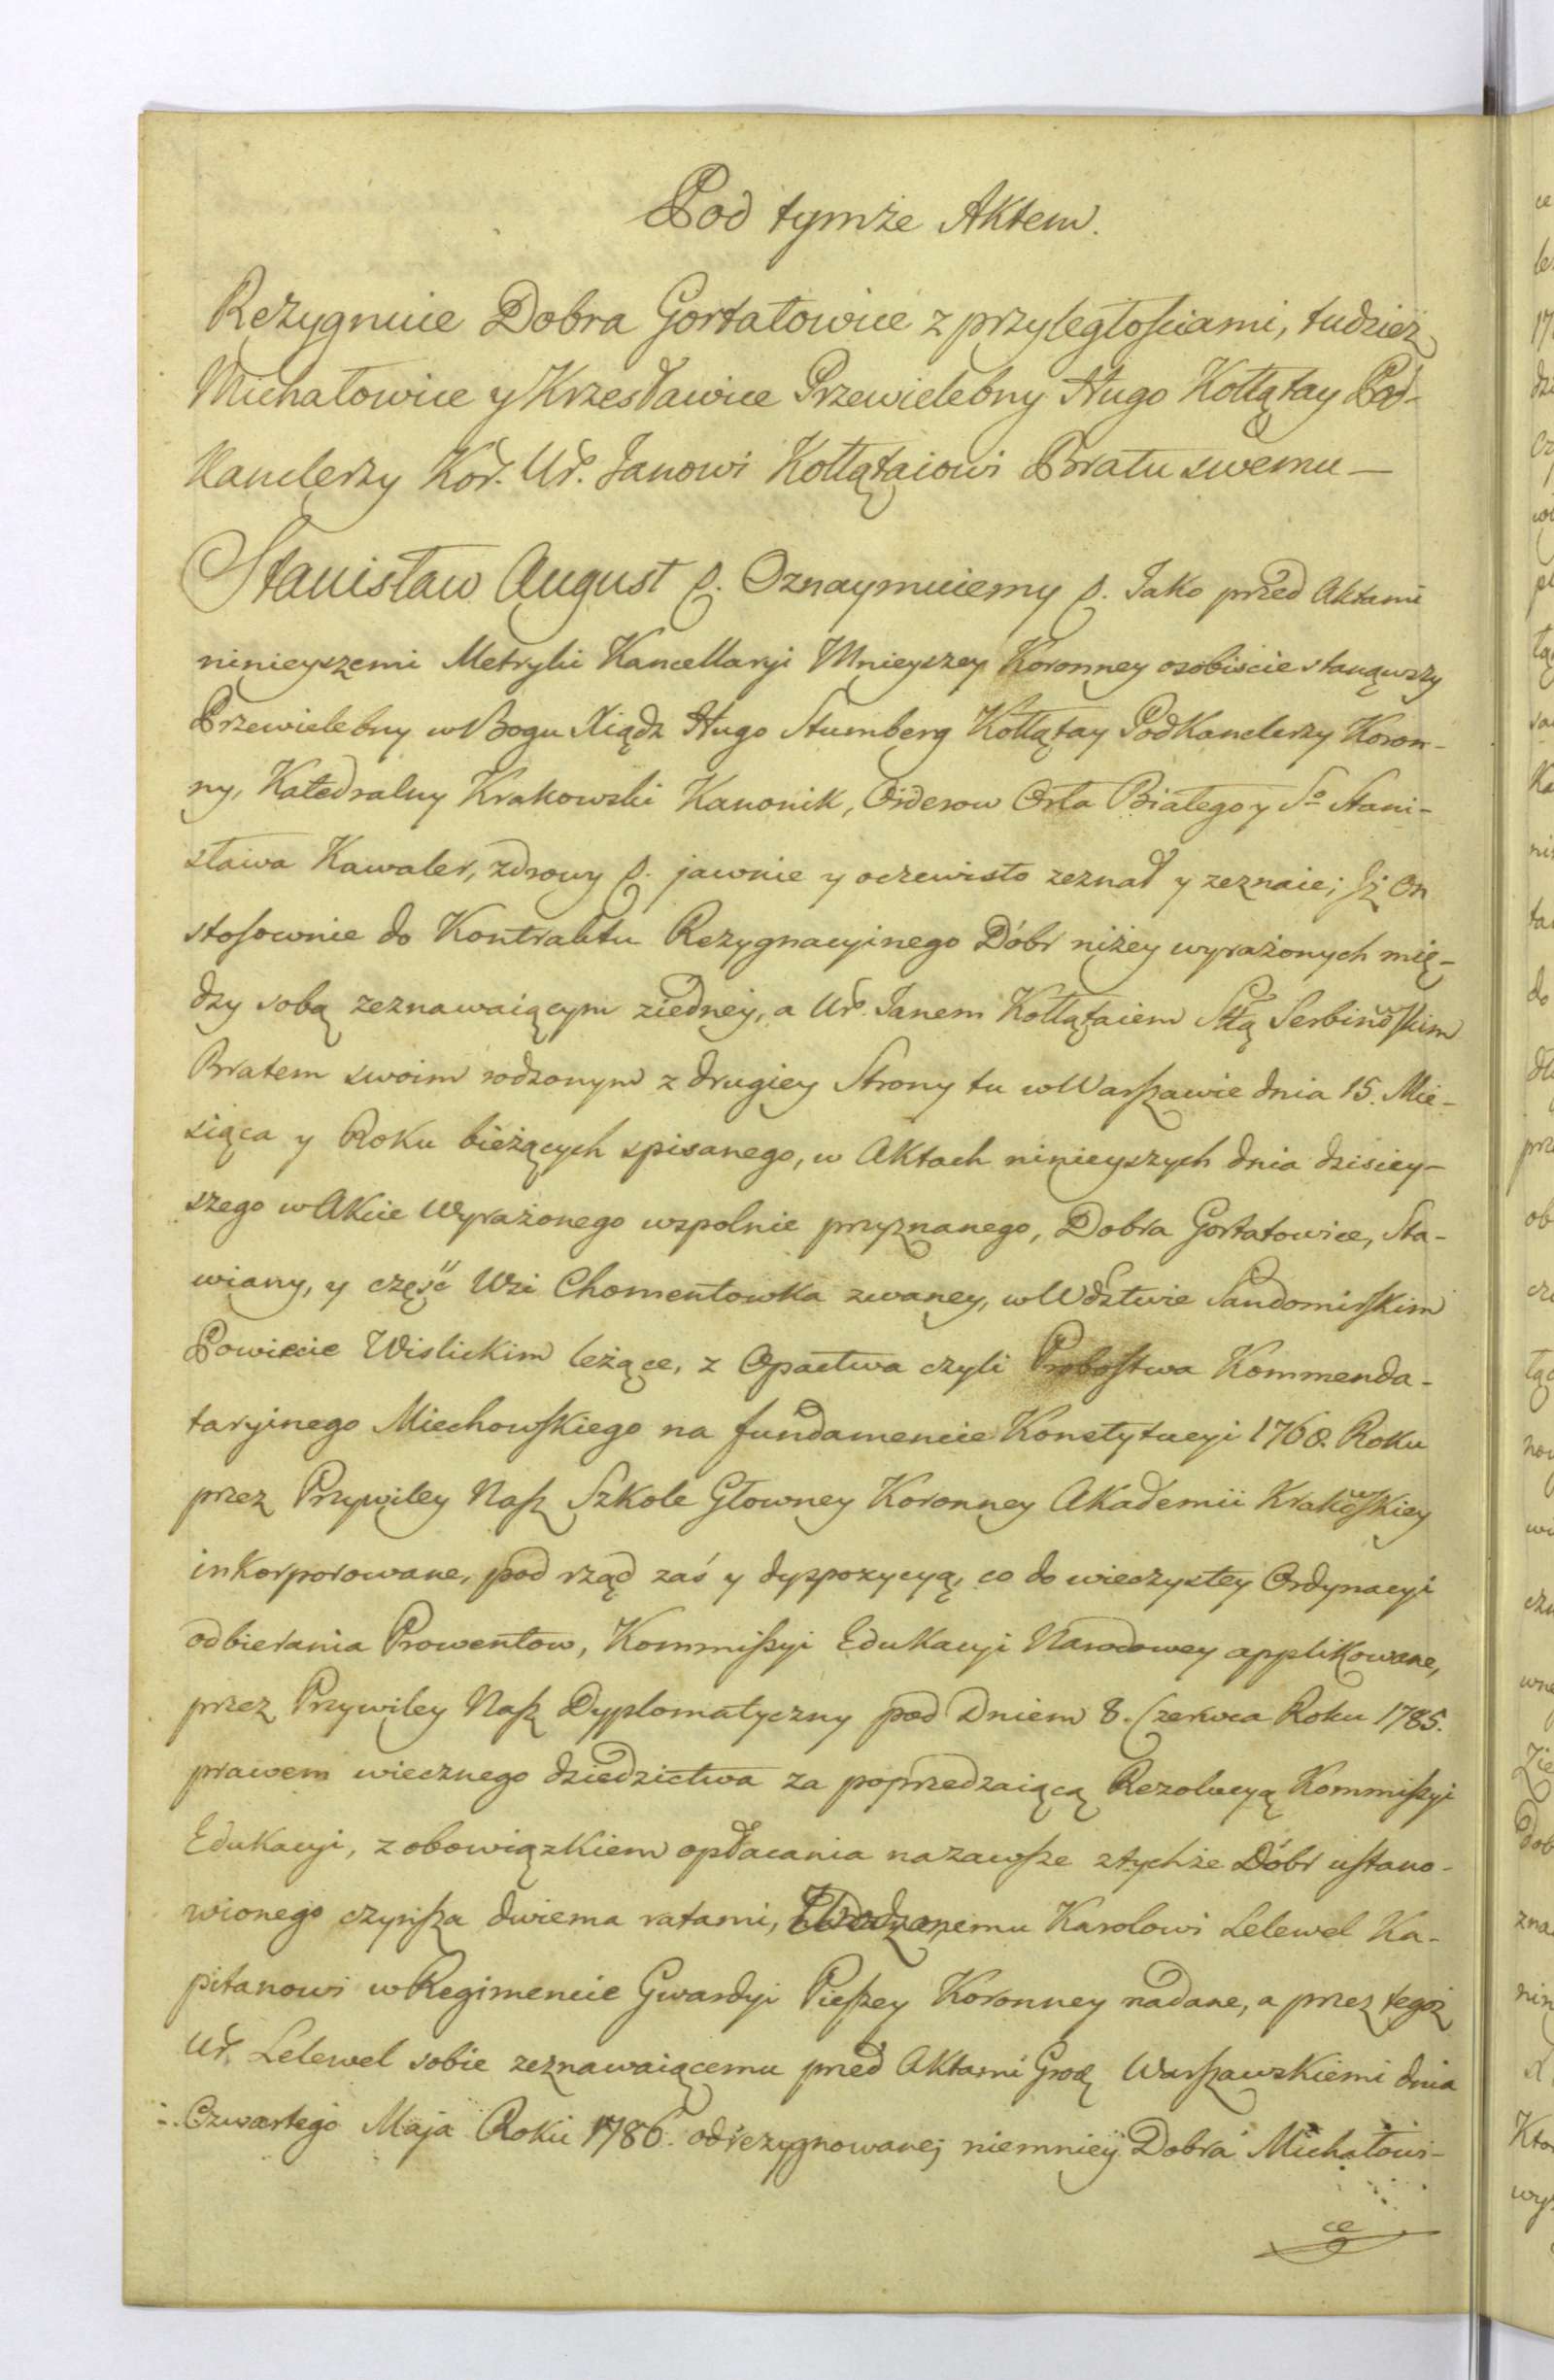 Pod tymże Aktem.
Rezygnuie Dobra Gortatowice z przyległościami, tudzież
Michałowice y Krzesławice Przewielebny Hugo Kołłątay Pod-
Kanclerzy Kor. Ur. Janowi Kołłątaiowi Bratu swemu —
Stanisław August p. Oznaymuiemy p. Jako przed Aktami
ninieyszemi Metryki Kancellaryi Mnieyszey Koronney osobiście stanąwszy
Przewielebny w Bogu Xiądz Hugo Stumberg Kołłątay PodKanclerzy Koron-
ny, Katedralny Krakowski Kanonik, Orderow Orła Białego y So Stani-
sława Kawaler, zdrowy p. jawnie y oczewisto zeznał y zeznaie; Jż On
stosownie do Kontraktu Rezygnacyinego Dóbr niżey wyrażonych mię-
dzy sobą zeznawaiącym ziedney, a Ur. Janem Kołłątaiem Stą Serbinowskim
Bratem swoim rodzonym z drugiey Strony tu w Warszawie dnia 15. Mie-
siąca y Roku bieżących spisanego, w Aktach ninieyszych dnia dzisiey-
szego w Akcie Wyrażonego wspolnie przyznanego, Dobra Gortatowice, Sta-
wiany, y część Wsi Chomentowka zwaney, w Wdztwie Sandomirskim
Powiecie Wislickim leżące, z Opactwa czyli Probostwa Kommenda-
taryinego Miechowskiego na fundamencie Konstytucyi 1768. Roku
przez Przywiley Nasz Szkole Głowney Koronney Akademii Krakowskiey
inkorporowane, pod rząd zaś y dyspozycyą, co do wieczystey Ordynacyi
odbierania Prowentow, Kommissyi Edukacyi Narodowey applikowane,
przez Przywiley Nasz Dyplomatyczny pod Dniem 8. Czerwca Roku 1785.
prawem wiecznego dziedzictwa za poprzedzaiącą Rezolucyą Kommissyi
Edukacyi, z obowiązkiem opłacania nazawsze z tychże Dóbr ustano-
wionego czynsza dwiema ratami, Urodzonemu Karolowi Lelewel Ka-
pitanowi w Regimencie Gwardyi Pieszey Koronney nadane, a przez tegoż
Ur. Lelewel sobie zeznawaiącemu przed Aktami Grodz Warszawskiemi dnia
Czwartego Maja Roku 1786. odrezygnowane; niemniey Dobra Michałowi-
ce